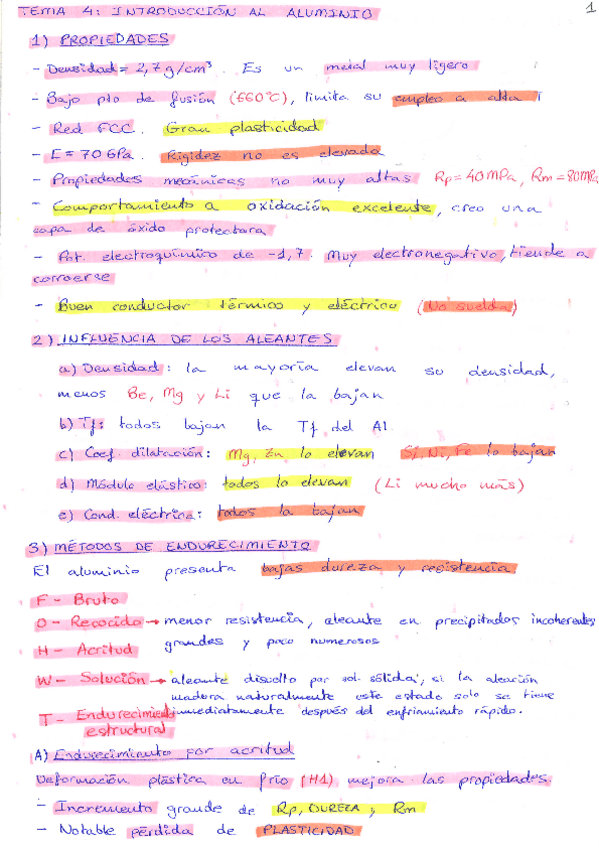 TEMA 4: INTRODUCCIÓN AL ALUMINIO 1
1) PROPIEDADES
- Densidad = 2,7 g/cm³. Es un metal muy ligero
- Bajo pto de fusión (660°C), limita su empleo a alta T
- Red FCC. Gran plasticidad
- E = 70 GPa. Rigidez no es elevada
- Propiedades mecánicas no muy altas Rp = 40 MPa, Rm = 80 MPa
- Comportamiento a oxidación excelente, creo una
capa de óxido protectora
- Pot. electroquímico de -1,7. Muy electronegativo, tiende a
corroerse
- Buen conductor térmico y eléctrico (No suelda)
2) INFLUENCIA DE LOS ALEANTES
a) Densidad: la mayoría elevan su densidad,
menos Be, Mg y Li que la bajan
b) Tf: todos bajan la Tf del Al
c) Coef. dilatación: Mg, Zn lo elevan Si, Ni, Fe lo bajan
d) Módulo elástico: todos lo elevan (Li mucho más)
e) Cond. eléctrica: todos la bajan
3) MÉTODOS DE ENDURECIMIENTO
El aluminio presenta bajas dureza y resistencia.
F - Bruto
O - Recocido → menor resistencia, aleante en precipitados incoherentes
grandes y poco numerosos
H - Acritud
W - Solución → aleante disuelto por sol. sólida; si la aleación
madura naturalmente este estado solo se tiene
inmediatamente después del enfriamiento rápido.
T - Endurecimiento
estructural
A) Endurecimiento por acritud
Deformación plástica en frío (H1) mejora las propiedades.
- Incremento grande de Rp, DUREZA y Rm
- Notable pérdida de PLASTICIDAD